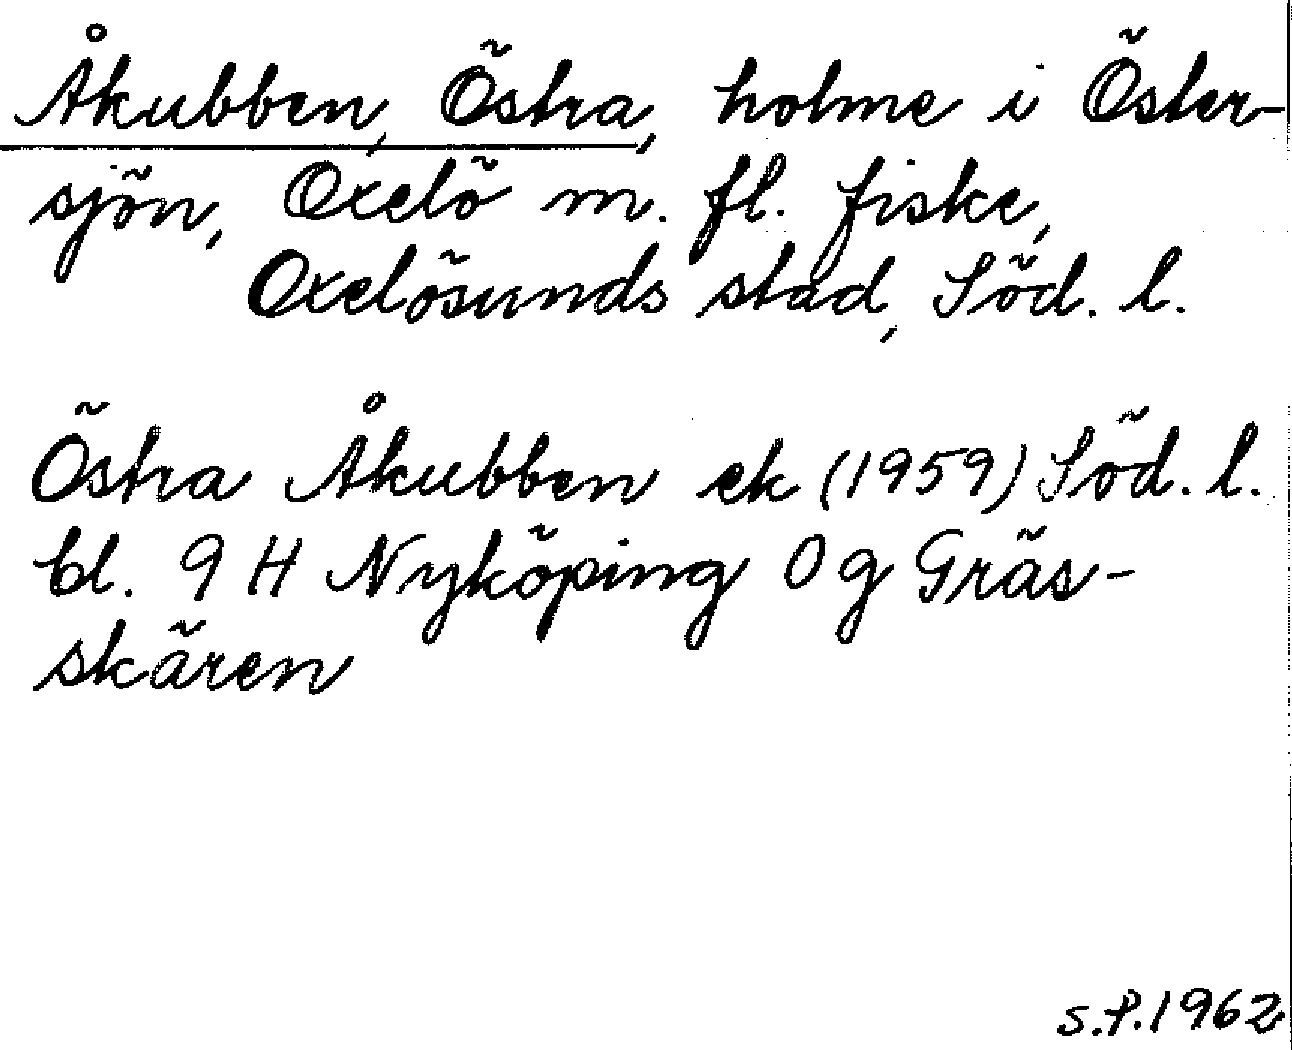 Åkubben, Östra, holme i Öster-
sjön, Oxelö m. fl. fiske,
Oxelösunds stad, Söd. l.
Östra Åkubben ek (1959) Söd. l.
bl. 9 H Nyköping 0 g Gräs-
skären
S.P. 1962